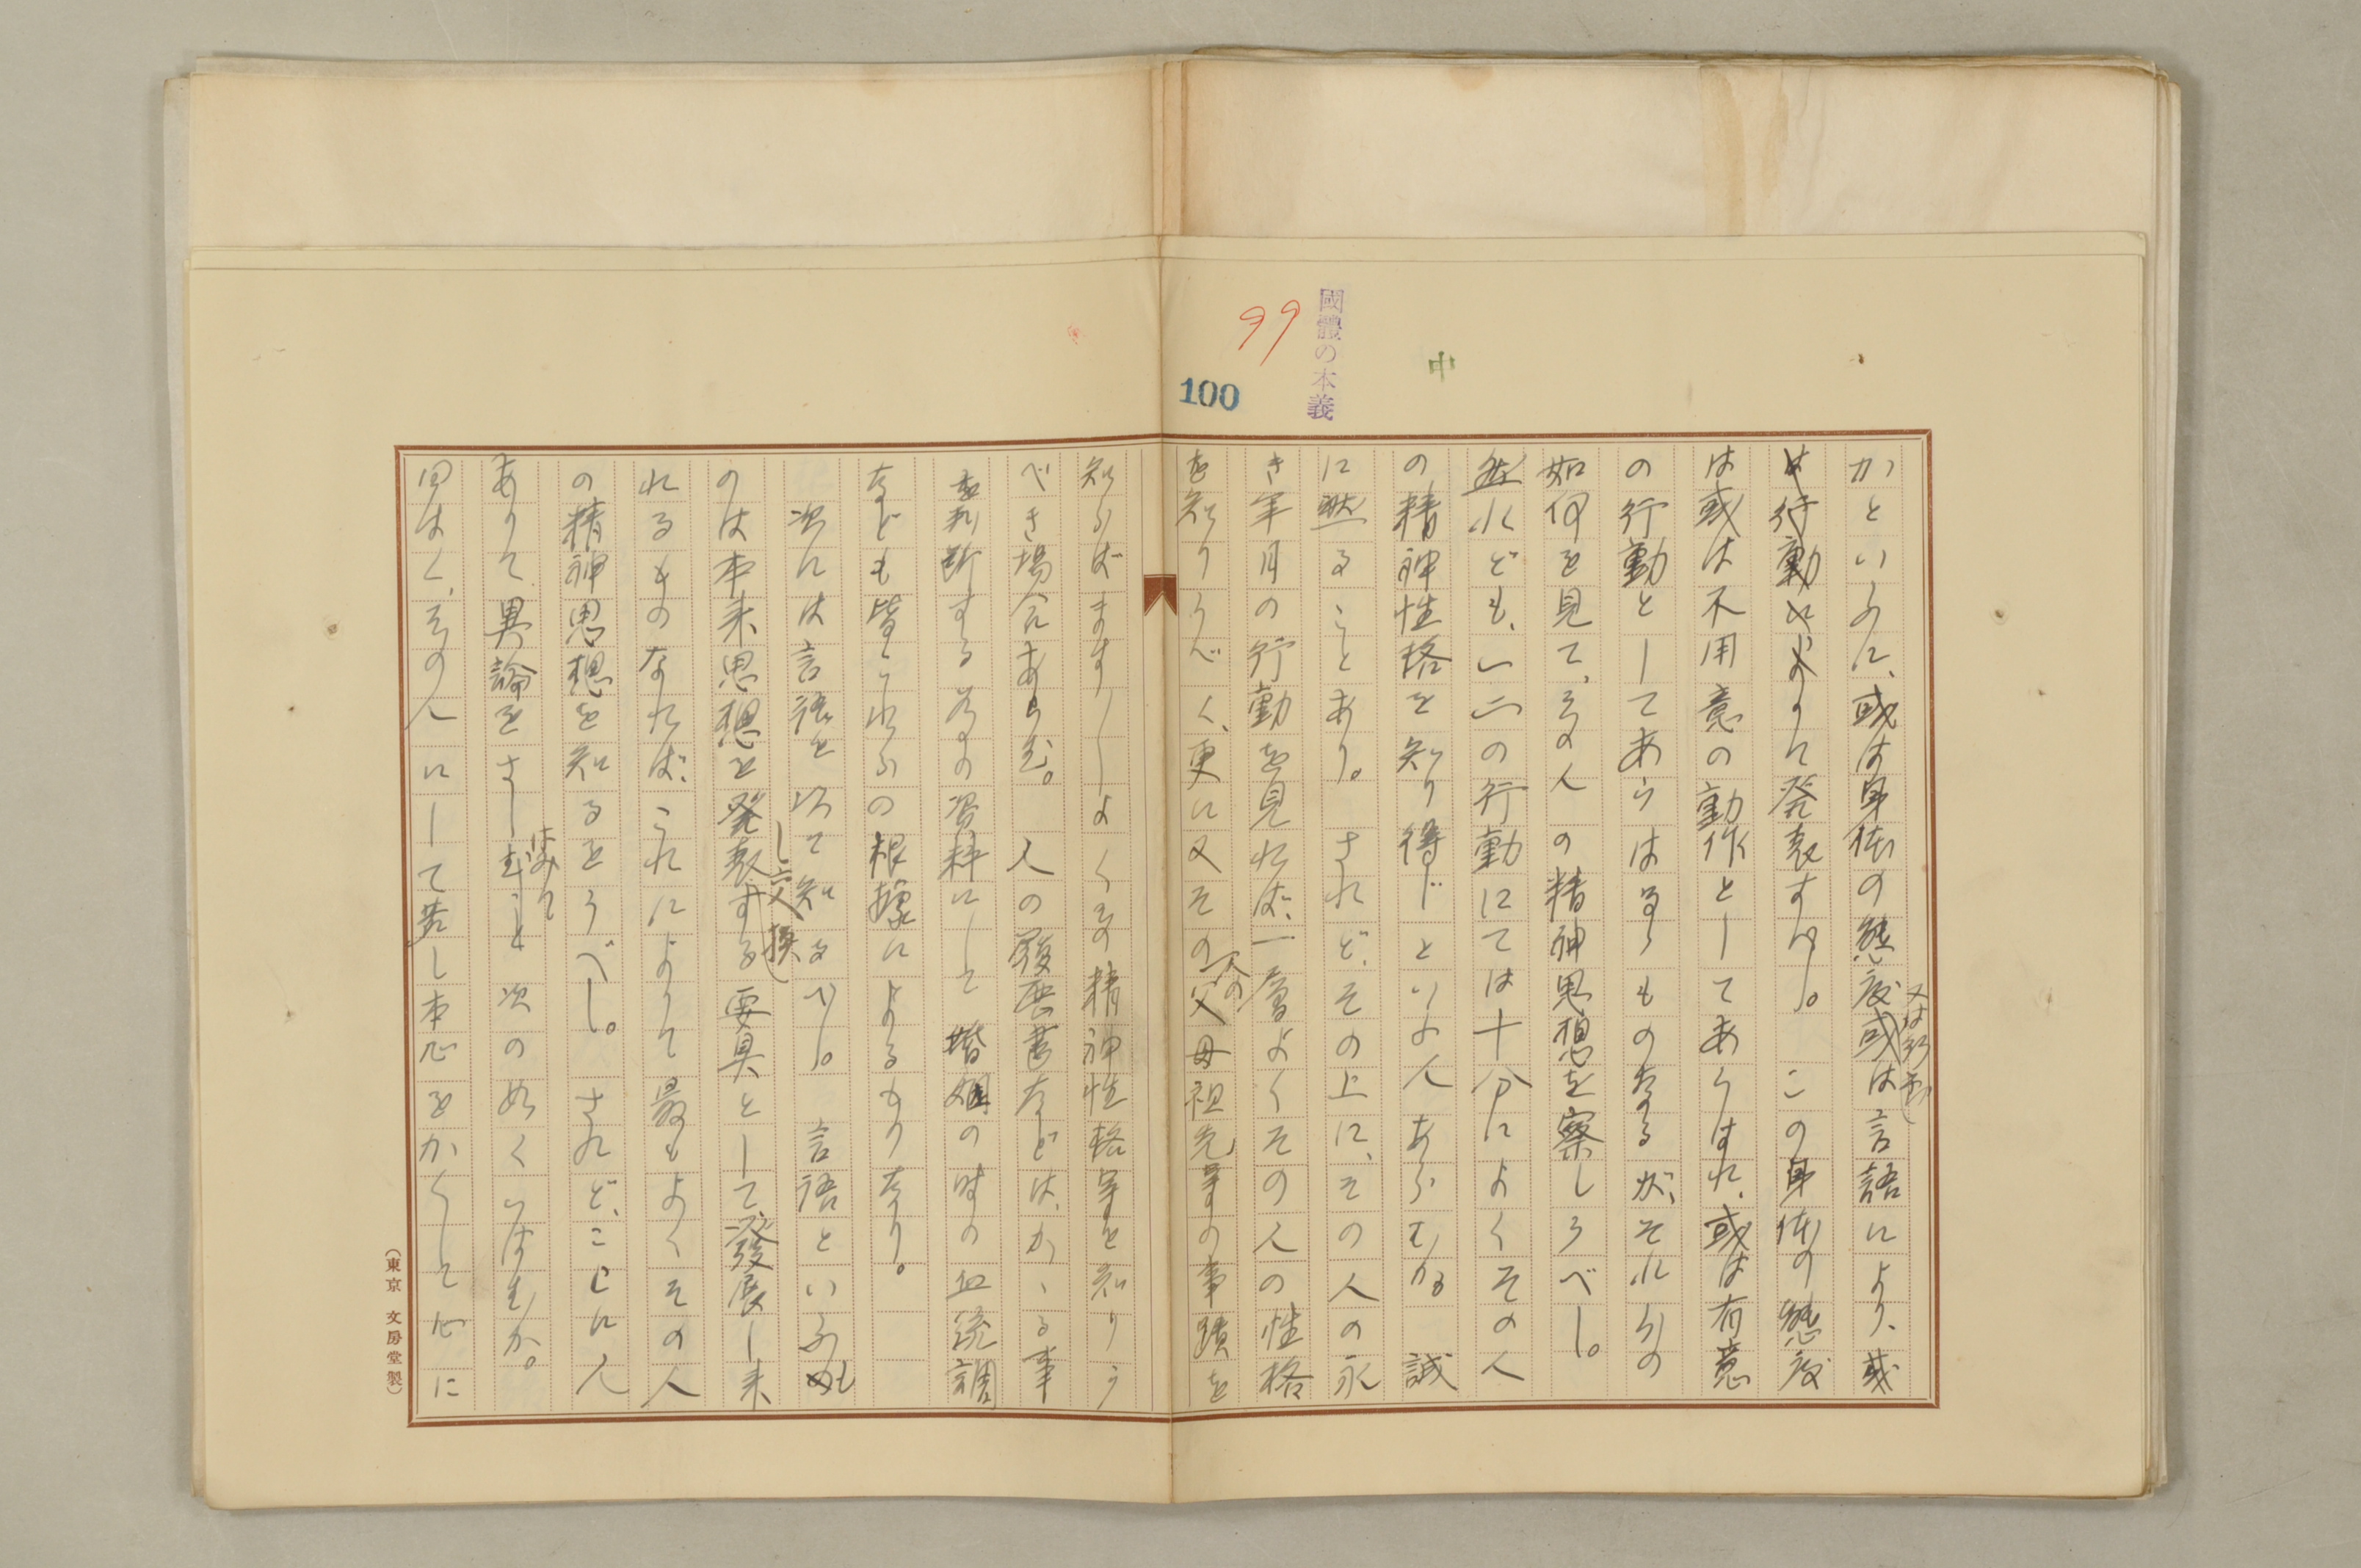 國體の本義
中
99
100
かといふに、或は身体の態度或は言語により、或
又は行動
は行動によりて発表すべし。 この身体の態度
は或は不用意の動作としてあらはれ、或は有意
の行動としてあらはるゝものなるが、それらの
如何を見て、その人の精神思想を察しうべし。
然れども、一二の行動にては十分によくその人
の精神性格を知り得じといふ人あらむか。 誠
に然ることあり。 されど、その上に、その人の永
き年月の行動を見れば、一層よくその人の性格
を知りうべく、更に又その父母祖先等の事蹟を
人の
知らばますますよくその精神性格等を知りう
べき場合あらむ。 人の履歴書などは、かゝる事
を判断する為の資料にして 婚姻の時の血統調
なども皆これらの根據によるものなり。
次には言語を以て知るべし。 言語といふも
のは本来思想を発表する要具として發展し来
し交換
れるものなれば、これによりて最もよくその人
の精神思想を知るをうべし。 されど、こゝに人
ありて異論をさしはさみて次の如くいはむか。
曰はく、その人にして若し本心をかくして心に
(東京 文房堂製)